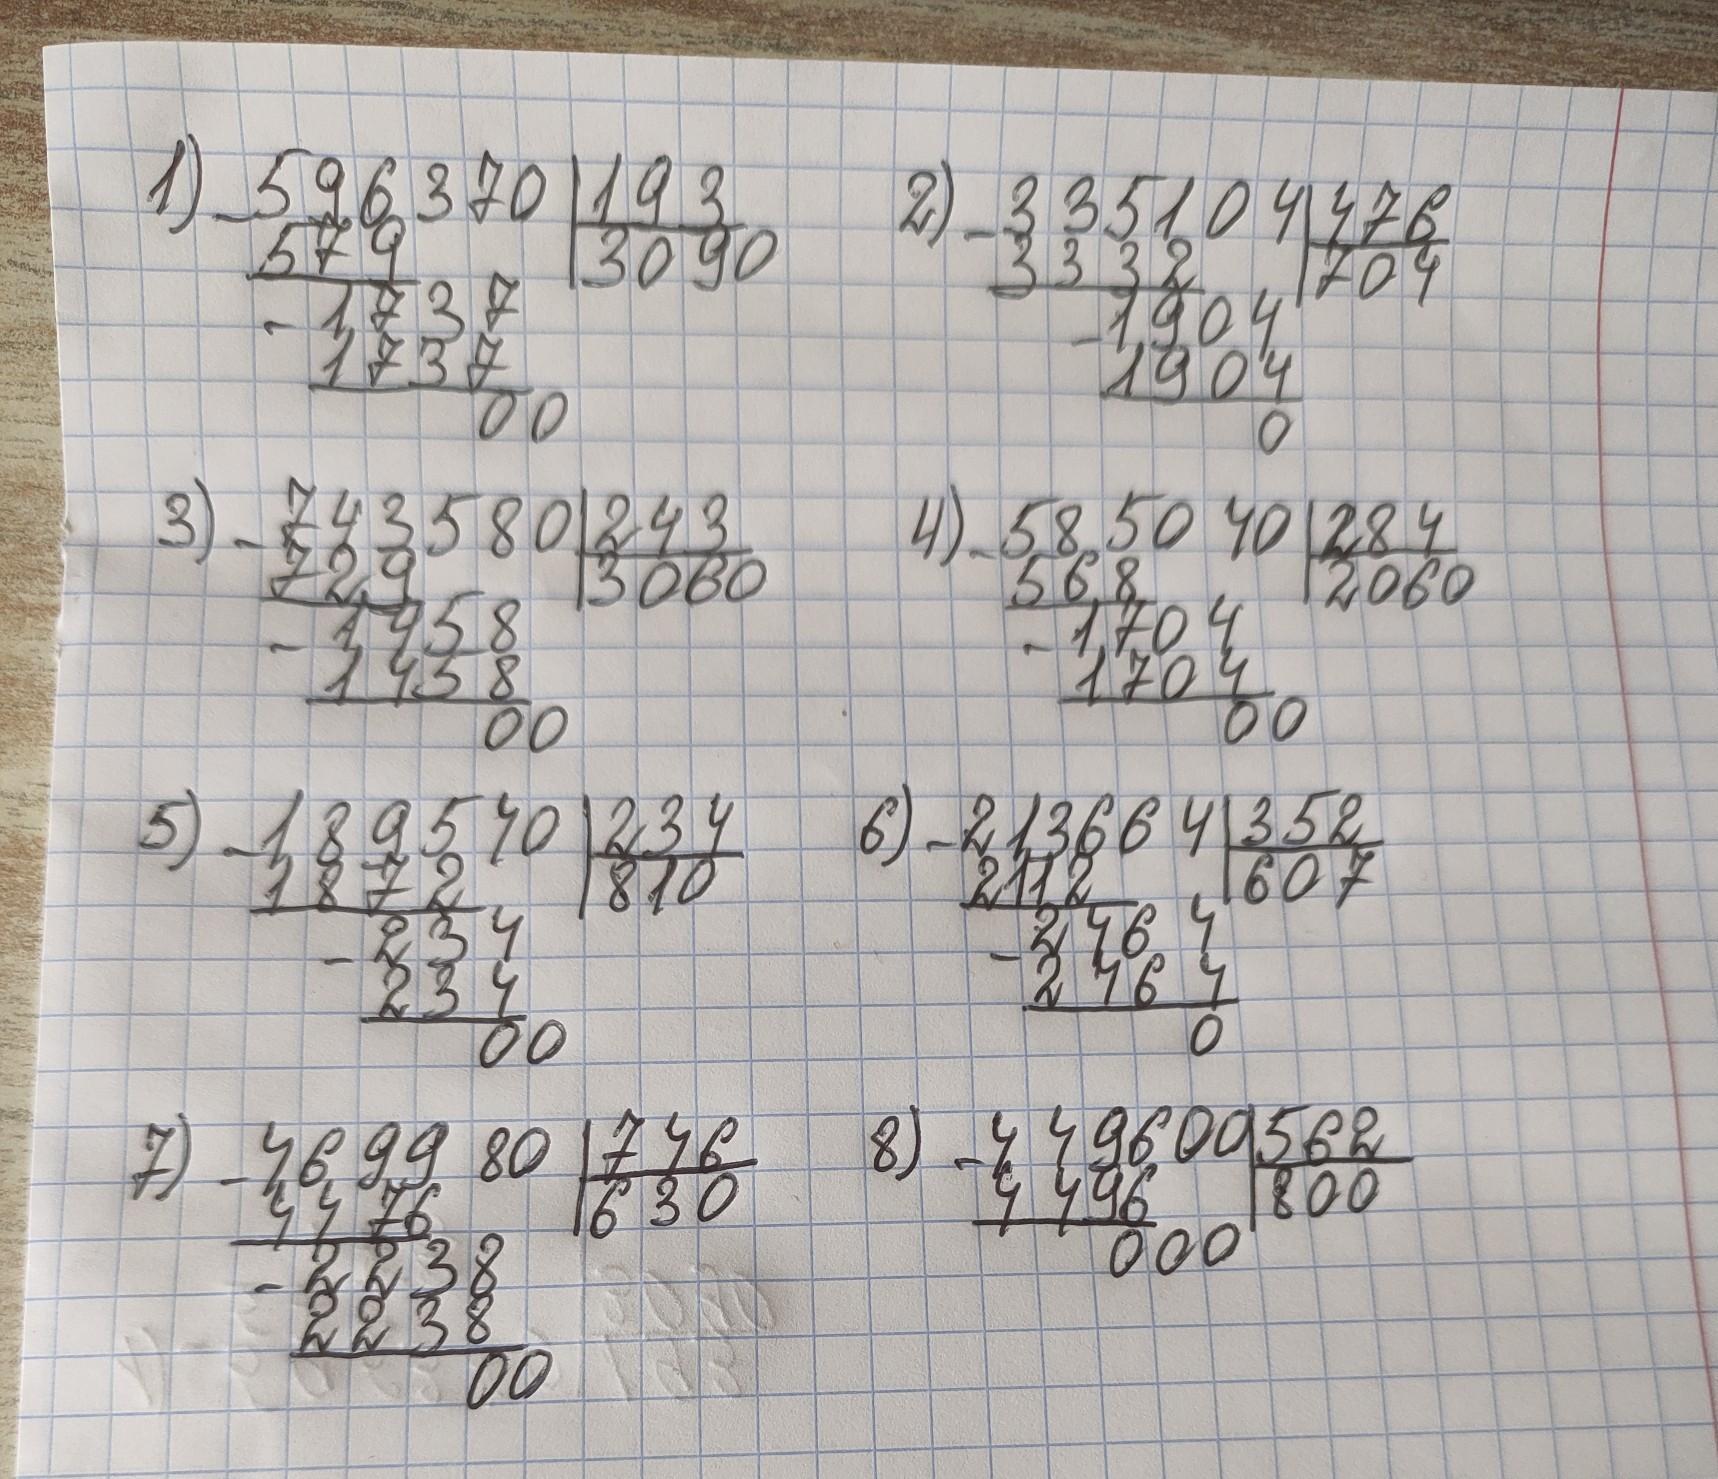 1) -596370 | 193
579 | 3090
-1737
1737
00
2) -335104 | 476
3332 | 704
-1904
1904
0
3) -743580 | 243
729 | 3060
-1458
1458
00
4) -585040 | 284
568 | 2060
-1704
1704
00
5) -189540 | 234
1872 | 810
-234
234
00
6) -213664 | 352
2112 | 607
-2464
2464
0
7) -469980 | 746
4476 | 630
-2238
2238
00
8) -449600 | 562
4496 | 800
000